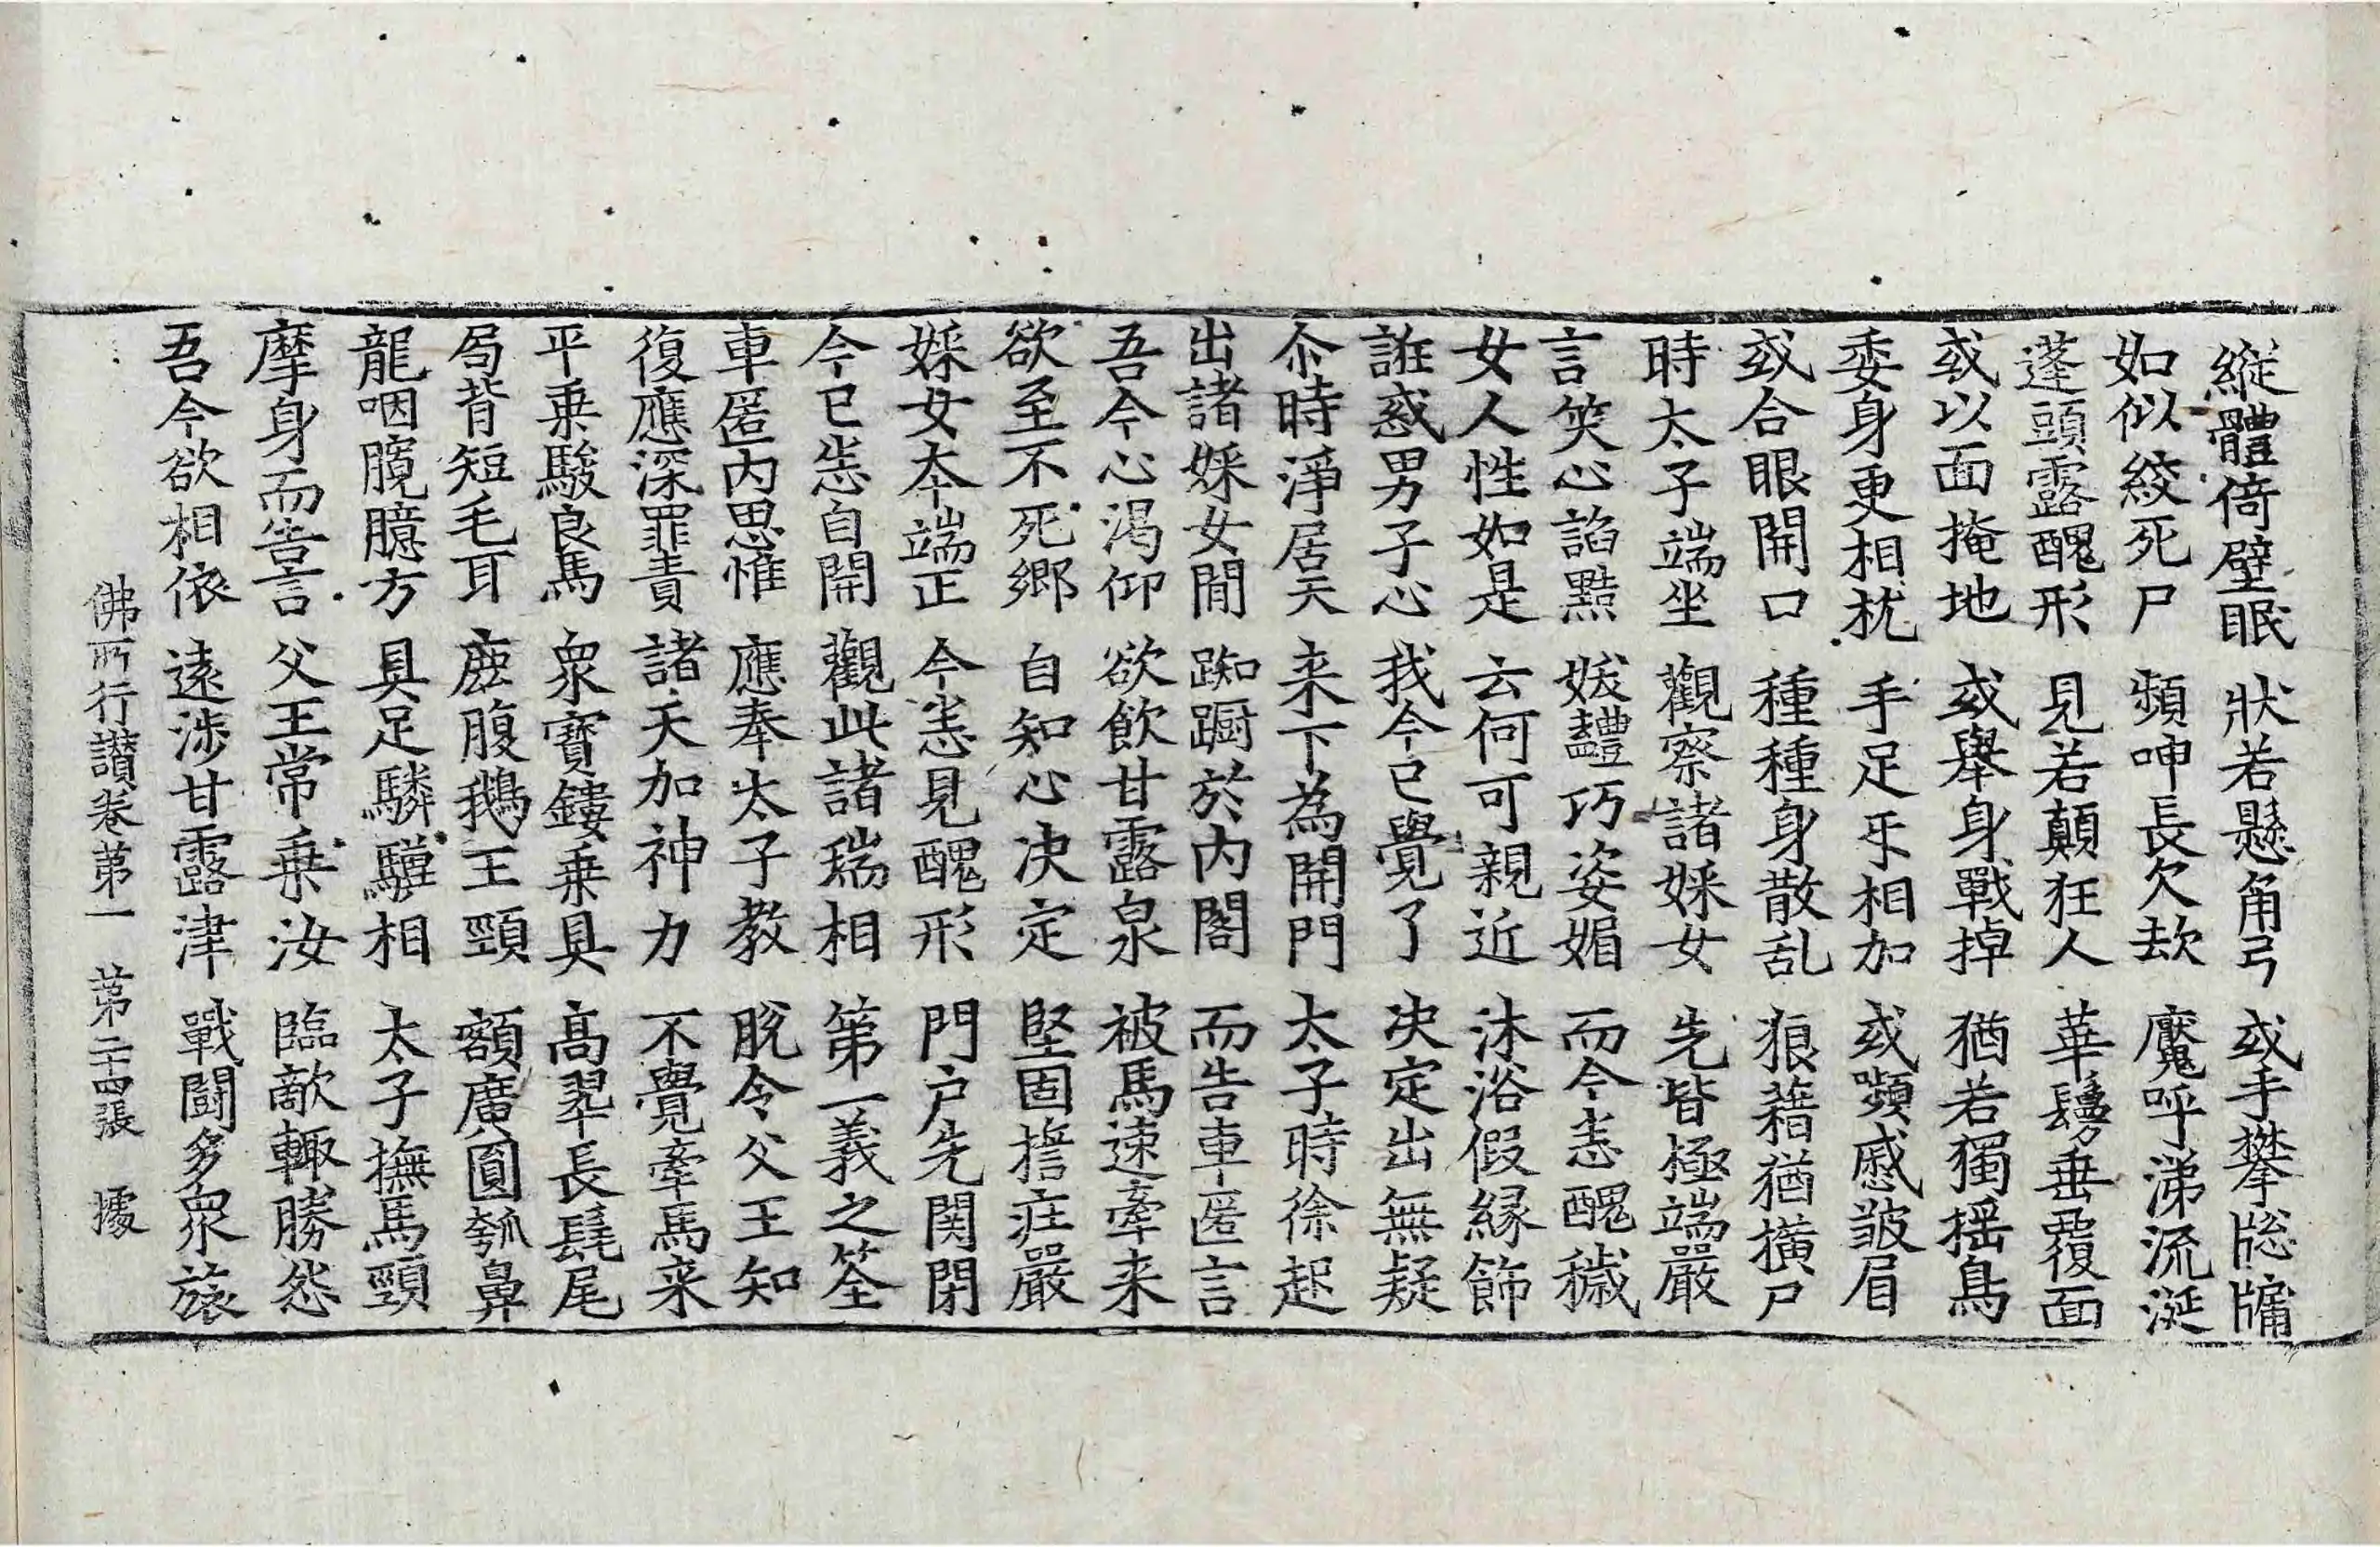 縱體倚壁眠 狀若懸角弓 或手攀牎牗
如似絞死尸 頻呻長欠呿 魘呼涕流涎
蓬頭露醜形 見若顛狂人 華鬘垂覆面
或以面掩地 或舉身戰掉 猶若獨搖鳥
委身更相枕 手足㸦相加 或嚬慼皺眉
或合眼開口 種種身散乱 狼藉猶橫尸
時太子端坐 觀察諸婇女 先皆極端嚴
言笑心諂黠 妖豔巧姿媚 而今悉醜穢
女人性如是 云何可親近 沐浴假緣飾
誑惑男子心 我今已覺了 决定出無疑
尒時淨居天 来下為開門 太子時徐起
出諸婇女閒 踟蹰於内閣 而告車匿言
吾今心渴仰 欲飲甘露泉 被馬速牽来
欲至不死鄉 自知心决定 堅固擔莊嚴
婇女本端正 今悉見醜形 門户先関閉
今已悉自開 觀此諸瑞相 第一義之筌
車匿内思惟 應奉太子教 脫令父王知
復應深罪責 諸天加神力 不覺牽馬来
平乗駿良馬 衆寳鏤乗具 高翠長髦尾
局背短毛耳 鹿腹鵝王頸 額廣圓瓠鼻
龍咽臗臆方 具足驎驥相 太子撫馬頸
摩身而告言 父王常乗汝 臨敵輙勝怨
吾今欲相依 遠涉甘露津 戰鬪多衆旅
佛所行讃卷第一 第二十四張 㩀